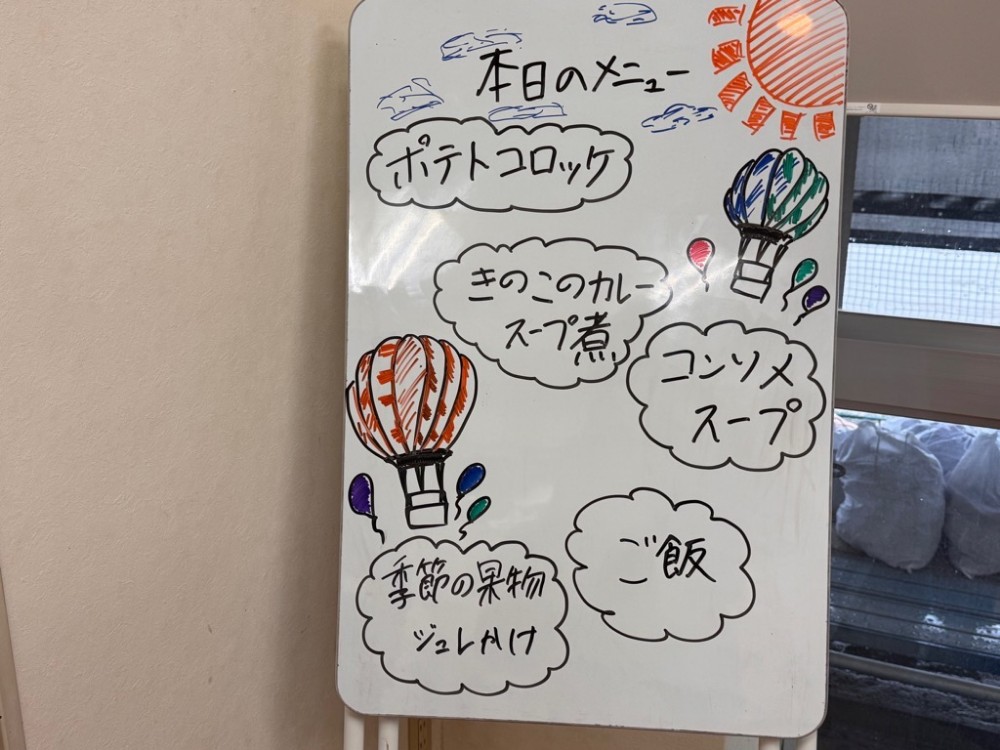 本日のメニュー
ポテトコロッケ
きのこのカレー
スープ煮
コンソメ
スープ
ご飯
季節の果物
ジュレかけ